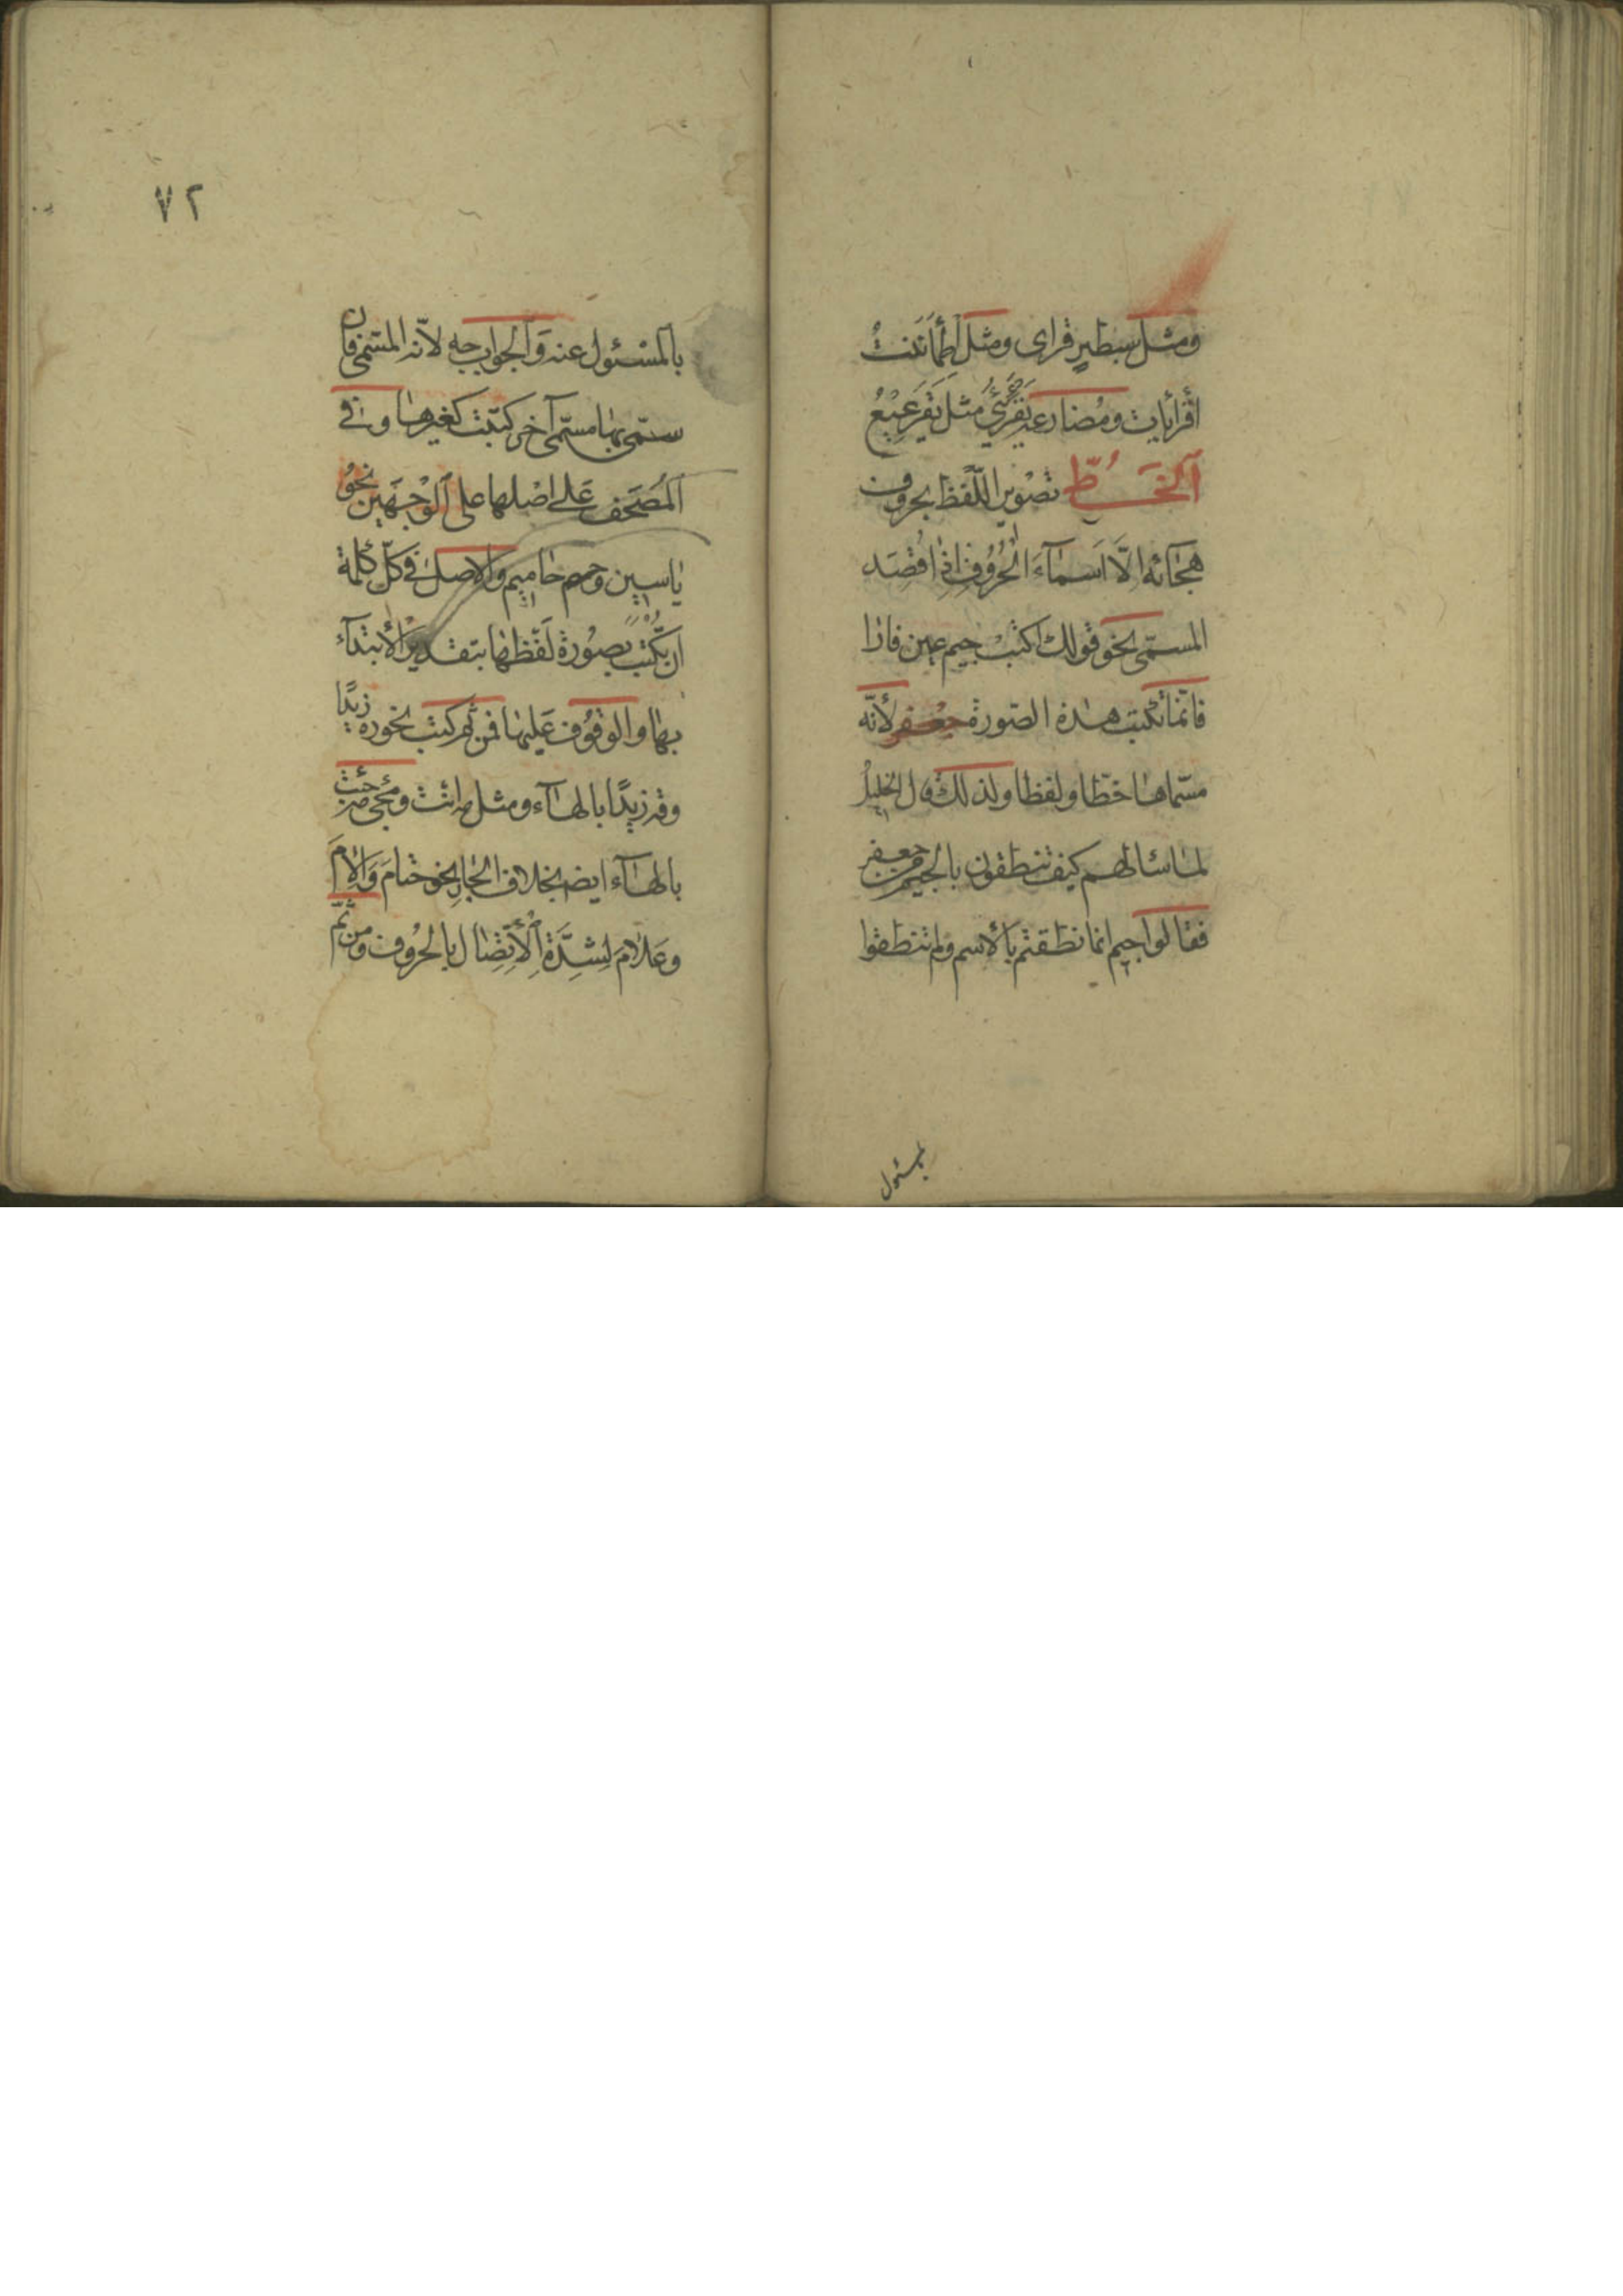 ومثل سبطير قراى ومثل اِطْمَأْنَنْتُ
اقرأيات ومُضارعه يَقْرَئِيُّ مثل يَقْرَعِيْعُ
اَلْخَطُّ تصْوير اللّفظ بحروف
هجَائه اِلّا اَسماءَ الحُرُوفِ اِذا قُصِدَ
المسمّى نحو قولك اكتبْ جيم عين فا را
فانّما تكتب هذه الصّورة جعفر لأنّه
مسمّاها خطّا ولفظا ولذلك قال الخليلُ
لما سالهم كيف تنطقون بالجيم من جعفر
فقالوا جيم انما نطقتم بالأسم ولم تنطقوا
بالمسْئول عنه وَالجواب جه لانّه المسَمّى فان
سمّى بها مسمّى آخر كتبت كغيرها وفى
اَلمُصْحَف عَلى اصْلها على اَلوْجهَين نحوُ
ياسين وحم حاميم والاصل فى كلّ كلمة
ان تكْتب بصُورة لَفْظها بتقدير الأبتدآء
بها والوقُوف عَليها فمن ثم كتب نحو ره زيدًا
وقه زيدًا بالهاء ومثل مه انت ومجىء مه جئت
بالهاء ايضا بخلاف الجارِ نحو حتام وَالامَ
وعلامَ لِشدَّة اَلأتّصال بالحرُوف ومن ثمّ
٧٢
بالمسئول